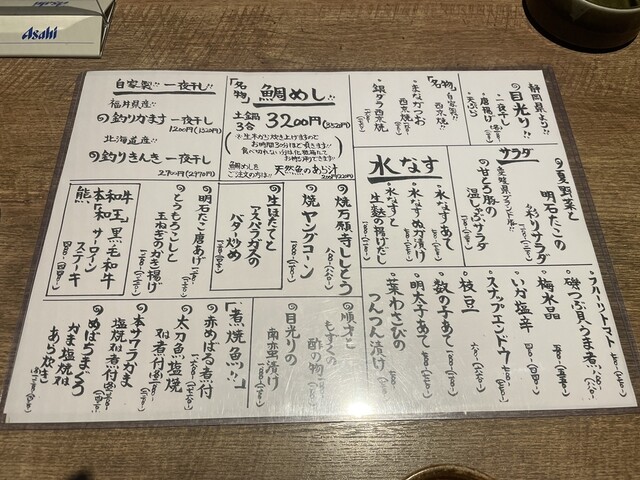 Asahi
静岡県より!!
目光り!!
・一夜干し
・唐揚げ
・天ぷら
「名物」
自家製!!
・まながつお
西京焼
・銀ダラ西京焼
「名物」
鯛めし!!
土鍋
3合
3200円(3520円)
※生米から炊き上げますので
お時間30分ほど頂きます!!
食べ切れない分は化粧箱にて
お持ち帰りできます!!
鯛めしを
ご注文の方は!!
天然魚のあら汁
200円(220円)
自家製!! 一夜干し!!
福井県産!!
釣りかます 一夜干し
1200円(1320円)
北海道産!!
釣りきんき 一夜干し
2700円(2970円)
サラダ
夏野菜と
明石だこの
彩りサラダ
愛媛県ブランド豚!!
甘とろ豚の
温しゃぶサラダ
水なす
・水なすあて
・水なすぬか漬け
・水なすと
生麩の揚げだし
焼万願寺ししとう
焼ヤングコーン
生ほたてと
アスパラガスの
バター炒め
明石だこ唐あげ
とうもろこしと
玉ねぎのかき揚げ
熊本和牛
「和王」黒毛和牛
サーロイン
ステーキ
フルーツトマト
・磯つぶ貝うま煮
・梅水晶
・いか塩辛
・スナップエンドウ
・枝豆
・数の子あて
・明太子あて
・葉わさびの
つんつん漬け
順才と
もずくの
酢の物
目光りの
南蛮漬け
「煮・焼魚!!」
赤めばる煮付
太刀魚塩焼
又は煮付
本サワラかま
塩焼又は煮付
めばちまぐろ
かま塩焼又は
あら炊き